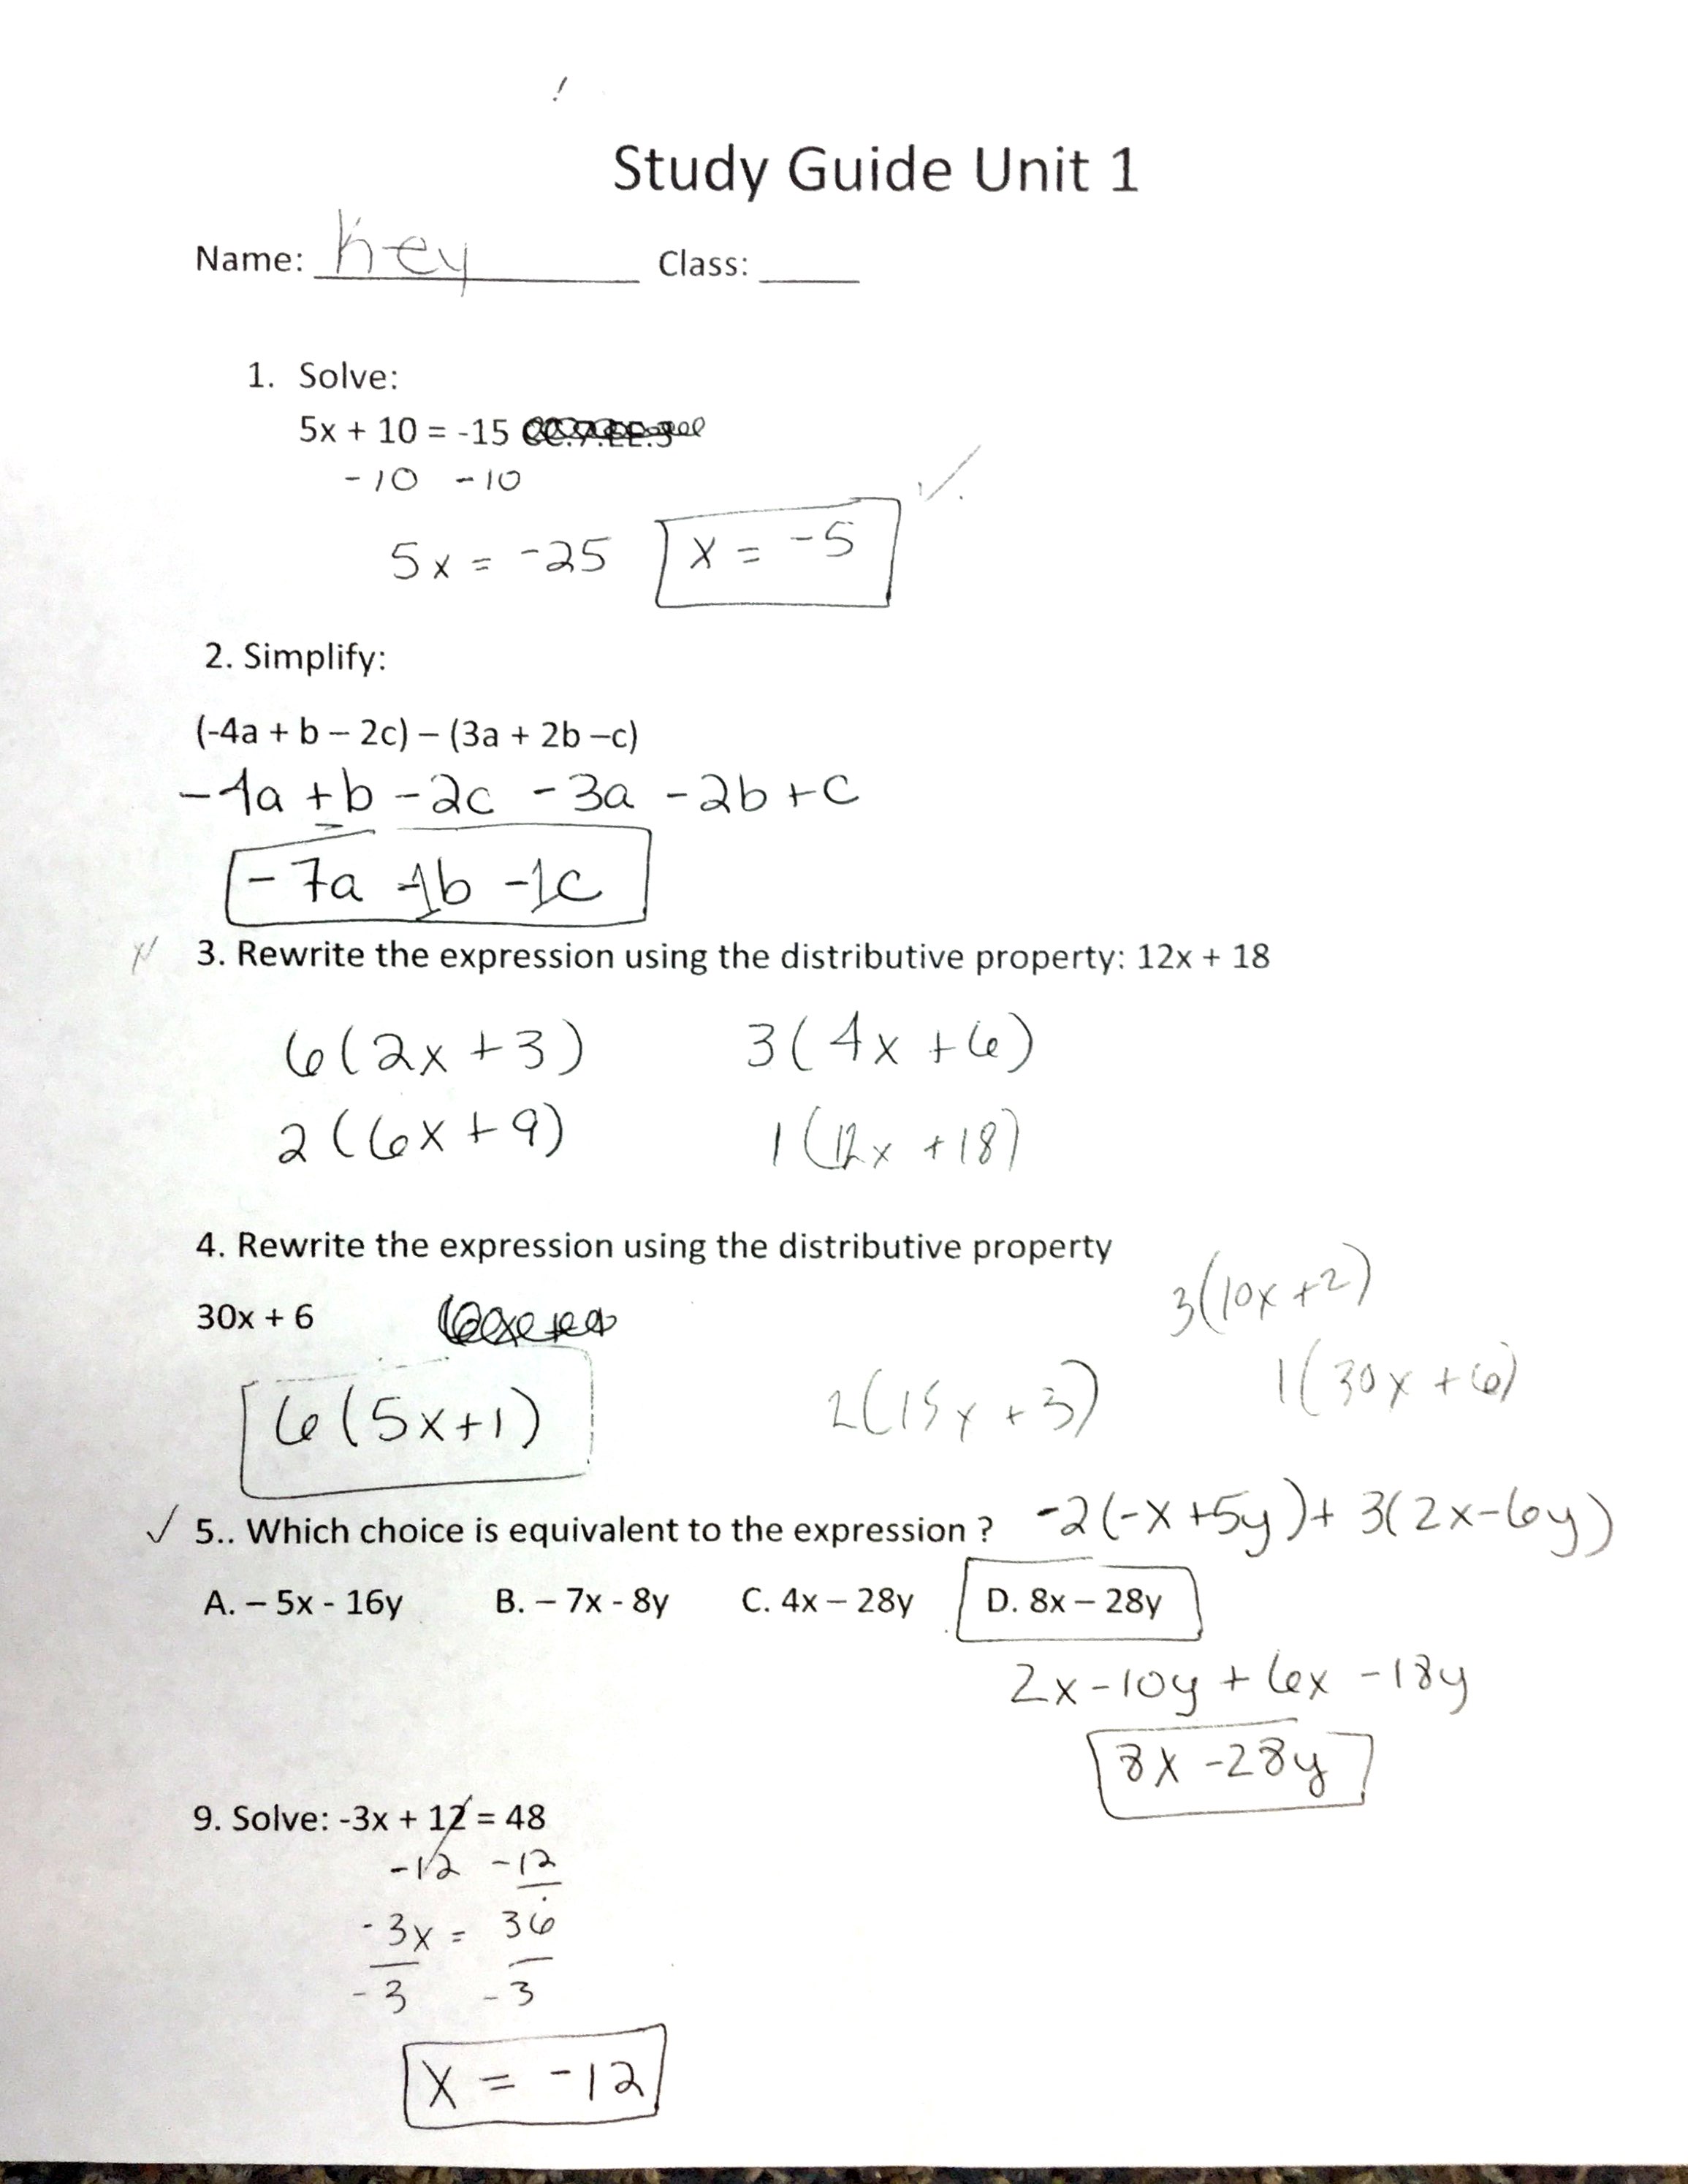 Study Guide Unit 1
Name: Key Class:
1. Solve:
5x + 10 = -15
-10 -10
5x = -25 x = -5
2. Simplify:
(-4a + b – 2c) – (3a + 2b –c)
-4a +b -2c -3a -2b +c
-7a -1b -1c
3. Rewrite the expression using the distributive property: 12x + 18
6(2x+3) 3(4x+6)
2(6x+9) 1(12x+18)
4. Rewrite the expression using the distributive property
3(10x+2)
30x + 6
1(30x+6)
6(5x+1) 2(15x+3)
✓ 5.. Which choice is equivalent to the expression ? -2(-x+5y)+3(2x-6y)
A. – 5x - 16y B. – 7x - 8y C. 4x – 28y D. 8x – 28y
2x-10y+6x-18y
8x-28y
9. Solve: -3x + 12 = 48
-12 -12
-3x = 36
-3 -3
x = -12